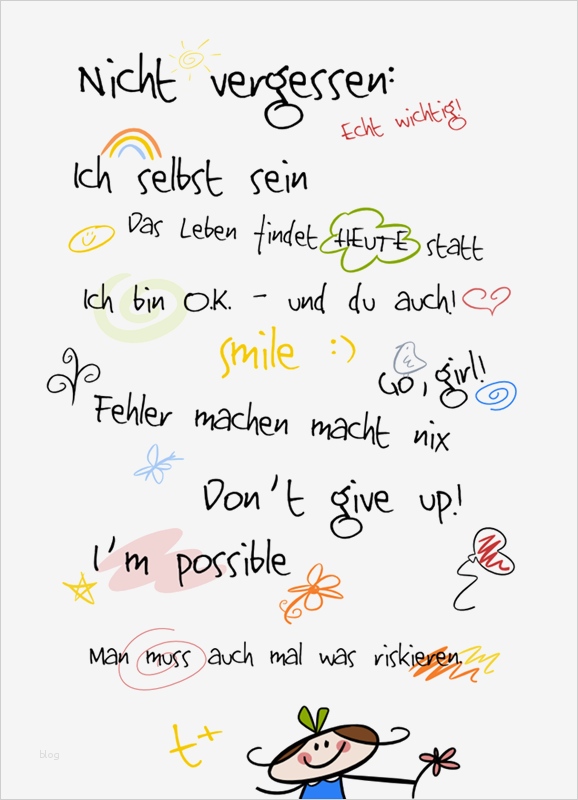 Nicht vergessen:
Echt wichtig!
Ich selbst sein
Das Leben findet HEUTE statt
Ich bin O.K. - und du auch!
smile :)
Go, girl!
Fehler machen macht nix
Don't give up!
I'm possible
Man muss auch mal was riskieren.
t+
blog